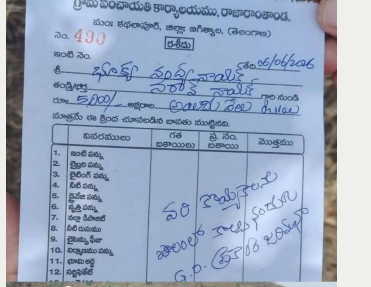 గ్రామ పంచాయతి కార్యాలయము, రాజారాంతాండ.
మం: కథలాపూర్, జిల్లా: జగిత్యాల, (తెలంగాణ)
నెం. 490
రశీదు
ఇంటి నెం. తేది 06/06/2026
శ్రీ భూక్య నాయక్
తండ్రి/భర్త నాయక్ గారి నుండి
రూ 5,000/- అక్షరాల అయిదు వేలు
మాత్రమే ఈ క్రింద చూపబడిన బాపతు ముట్టినవి.
వివరములు గత బకాయిలు ప్ర. సం. బకాయి మొత్తము
1. ఇంటి పన్ను
2. లైబ్రరి పన్ను
3. లైటింగ్ పన్ను
4. నీటి పన్ను
5. డ్రైనేజి పన్ను
6. వృత్తి పన్ను
7. నల్లా డిపాజిట్
8. నీటి రుసుము
9. లైసెన్సు ఫీజు
10. నిర్మాణము పన్ను
11. భూమి అద్దె
12. సర్టిఫికెట్
వరి కొయ్యకాలను
G.P.